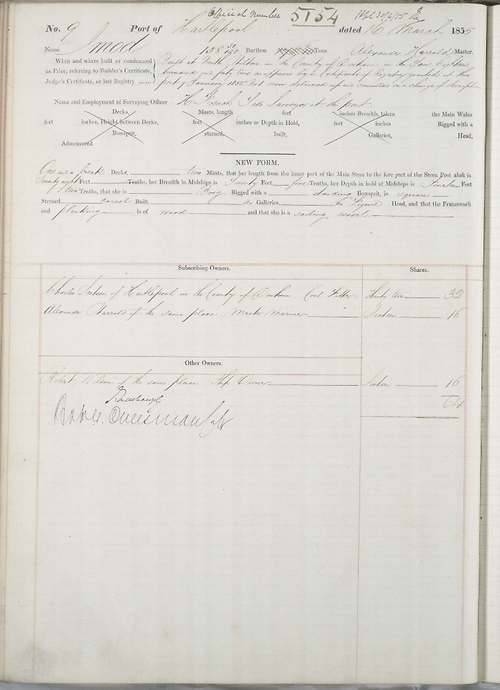 Official Number 5154
No. 9 Port of Hartlepool dated 16 March 1855
Name Burthen Tons Alexander Master.
When and where built or condemned Built at North Hylton in the County of Durham in the Year Eighteen
as Prize, referring to Builder's Certificate, hundred and forty two as appears by a Certificate of Registry granted at this
Judge's Certificate, or last Registry port January 1855 but now delivered up and cancelled
Name and Employment of Surveying Officer Tide Surveyor at this port
Decks, Masts, length feet inches Breadth, taken the Main Wales
feet inches, Height between Decks, feet inches or Depth in Hold, feet inches Rigged with a
Bowsprit, sterned, built, Galleries, Head,
Admeasured
NEW FORM.
One and a break Decks two Masts, that her length from the inner part of the Main Stem to the fore part of the Stern Post aloft is
Feet Tenths, her Breadth in Midships is Twenty Feet five Tenths, her Depth in hold at Midships is Feet
Tenths, that she is Rigged with a standing Bowsprit, is square
Sterned carvel Built no Galleries no Figure Head, and that the Framework
and planking is of wood and that she is a sailing vessel
Subscribing Owners. Shares.
Charles of Hartlepool in the County of Durham Coal Fitter Thirty two 32
Alexander of the same place Master Mariner Sixteen 16
Other Owners.
Robert of the same place Ship Owner Sixteen 16
64